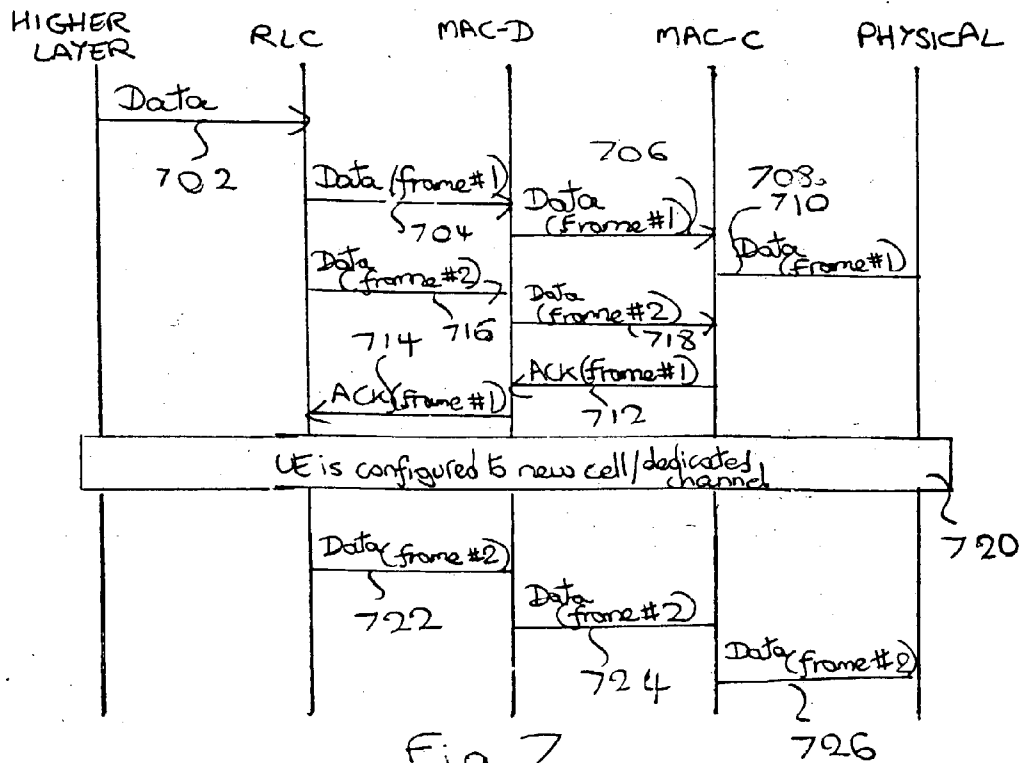 HIGHER
LAYER
RLC
MAC-D
MAC-C
PHYSICAL
Data
702
Data (frame#1)
704
706
Data
(frame#1)
708
710
Data
(frame#1)
Data
(frame#2)
716
Data
(frame#2)
718
714
ACK(frame#1)
712
ACK(frame#1)
UE is configured to new cell/dedicated
channel
720
Data(frame#2)
722
Data
(frame#2)
724
Data(frame#2)
726
Fig 7